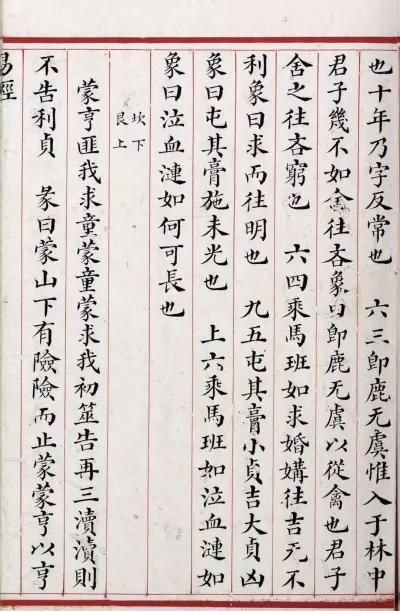 也十年乃字反常也　六三即鹿无虞惟入于林中
君子幾不如禽往吝象曰即鹿无虞以從禽也君子
舍之往吝窮也　六四乘馬班如求婚媾往吉无不
利象曰求而往明也　九五屯其膏小貞吉大貞凶
象曰屯其膏施未光也　上六乘馬班如泣血漣如
象曰泣血漣如何可長也
坎下
艮上
蒙亨匪我求童蒙童蒙求我初筮告再三瀆瀆則
不告利貞　彖曰蒙山下有險險而止蒙蒙亨以亨
易經